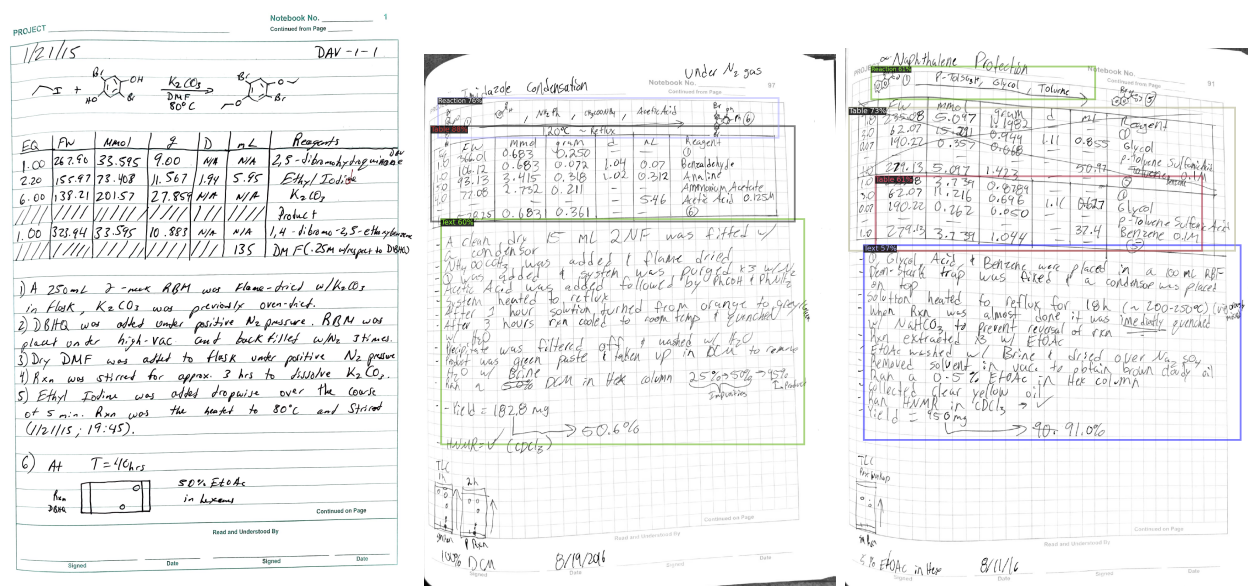 Notebook No. 1
PROJECT
Continued from Page
1/21/15
DAV-1-1
I
Br
OH
HO
Br
K2CO3
DMF
80°C
Br
O
O
Br
EQ FW Mmol g D mL Reagents
1.00 267.90 33.595 9.00 N/A N/A 2,5-dibromohydroquinone
2.20 155.97 73.908 11.567 1.94 5.95 Ethyl Iodide
6.00 138.21 201.57 27.859 N/A N/A K2CO3
Product
1.00 323.94 33.595 10.883 N/A N/A 1,4-dibromo-2,5-ethoxybenzene
135 DMF (.25M w/respect to DBHQ)
1) A 250mL 2-neck RBM was flame-dried w/K2CO3
in flask, K2CO3 was previously oven-dried.
2) DBHQ was added under positive N2 pressure. RBM was
placed under high-vac and backfilled w/N2 3 times.
3) Dry DMF was added to flask under positive N2 pressure
4) Rxn was stirred for approx. 3 hrs to dissolve K2CO3.
5) Ethyl Iodine was added dropwise over the course
of 5 min. Rxn was the heated to 80°C and Stirred
(1/21/15; 19:45).
6) At T=40hrs
Rxn
DBHQ
50% EtOAc
in hexanes
Continued on Page
Read and Understood By
Signed Date Signed Date
Under N2 gas
Imidazole Condensation
Notebook No.
Continued from Page
97
Reaction 76%
, NH2Ph, , Acetic Acid
120°C ~ Reflux
FW mmol gram d mL Reagent
366.01 0.683 0.250 — — ①
106.12 0.683 0.072 1.04 0.07 Benzaldehyde
93.13 3.415 0.318 1.02 0.312 Analine
77.08 2.732 0.211 — — Ammonium Acetate
— — — — 5.46 Acetic Acid 0.125M
0.683 0.361 — — ⑥
Text 60%
- A clean, dry 15 mL 2NF was fitted w/
a condensor
- NH4OOCCH3 was added & flame dried
- ① was added & system was purged x3 w/N2
- Acetic Acid was added followed by PhCOH & PhNH2
- System heated to reflux
- After 1 hour solution turned from orange to grey/green
- After 3 hours rxn cooled to room temp & quenched
w/ H2O
- Precipitate was filtered off & washed w/ H2O
- Product was green paste & taken up in DCM to remove
H2O w/ Brine
- Ran a 50% DCM in Hex column 25%→50%→75%
Impurities
Product
- Yield = 182.8 mg
→ 50.6%
- HNMR = ✓ (CDCl3)
TLC
1h 2h
100% DCM
8/19/2016
Continued on Page
Read and Understood By
Signed Date Signed Date
Naphthalene Protection
PROJECT
Notebook No.
Continued from Page
91
Reaction 61%
P-TolSO3H, Glycol, Toluene
Table 73%
FW mmol gram d mL Reagent
235.08 5.097 1.1982 — — ①
62.07 15.291 0.949 1.11 0.855 Glycol
190.22 0.357 0.068 — — p-Toluene Sulfonic Acid
— — — — 50.97 Toluene 0.1M
279.13 5.097 1.423
Table 61%
3.739 0.8789 — — ①
62.07 11.216 0.696 1.11 0.627 Glycol
190.22 0.262 0.050 — — p-Toluene Sulfonic Acid
— — — — 37.4 Benzene 0.1M
1.0 279.13 3.739 1.044 — — ⑤
Text 57%
- ①, Glycol, Acid, & Benzene were placed in a 100 mL RBF
- Dean-Stark trap was fixed & a condensor was placed
on top
- Solution heated to reflux for 18h (~200-250°C)
- When Rxn was almost done it was immediatly quenched
w/ NaHCO3 to prevent reversal of rxn
- Rxn extracted x3 w/ EtOAc
- EtOAc washed w/ Brine & dried over Na2SO4
- Removed solvent in vacuo to obtain brown cloudy oil
- Ran a 0-5% EtOAc in Hex column
- Collected clear yellow oil
- Ran HNMR in CDCl3 → ✓
- Yield = 950 mg
→ 91.0%
TLC
Pre workup
5% EtOAc in Hex
8/11/16
Continued on Page
Read and Understood By
Signed Date Signed Date